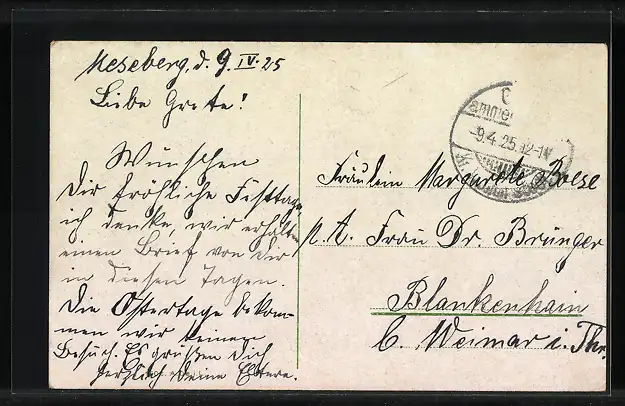 Meseberg, d. 9. IV. 25
Liebe Grete!
Wünschen
Dir fröhliche Festtage,
ich denke, wir erhalten
einen Brief von Dir
in diesen Tagen.
Die Ostertage bekom-
men wir keinen
Besuch. Es grüßen Dich
herzlich Deine Eltern.
-9.4.25.12-1N
Fräulein Margarete Boese
p. A. Frau Dr. Brünger
Blankenhain
b. Weimar i. Thr.